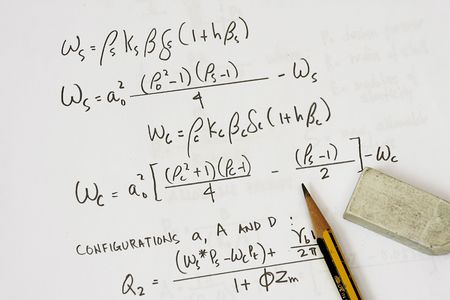 ω_s = ρ_s K_s β ζ_s (1 + h β_s)
ω_s = a_0^2 (ρ_0^2 - 1)(ρ_s - 1) / 4 - ω_s
ω_c = ρ_c K_c β_c δ_c (1 + h β_c)
ω_c = a_0^2 [ (ρ_c^2 + 1)(ρ_c - 1) / 4 - (ρ_s - 1) / 2 ] - ω_c
CONFIGURATIONS a, A AND D :
Q_2 = ( (ω_s * ρ_s - ω_c ρ_t) + γ_b / 2π ) / ( 1 + φ Z_m )